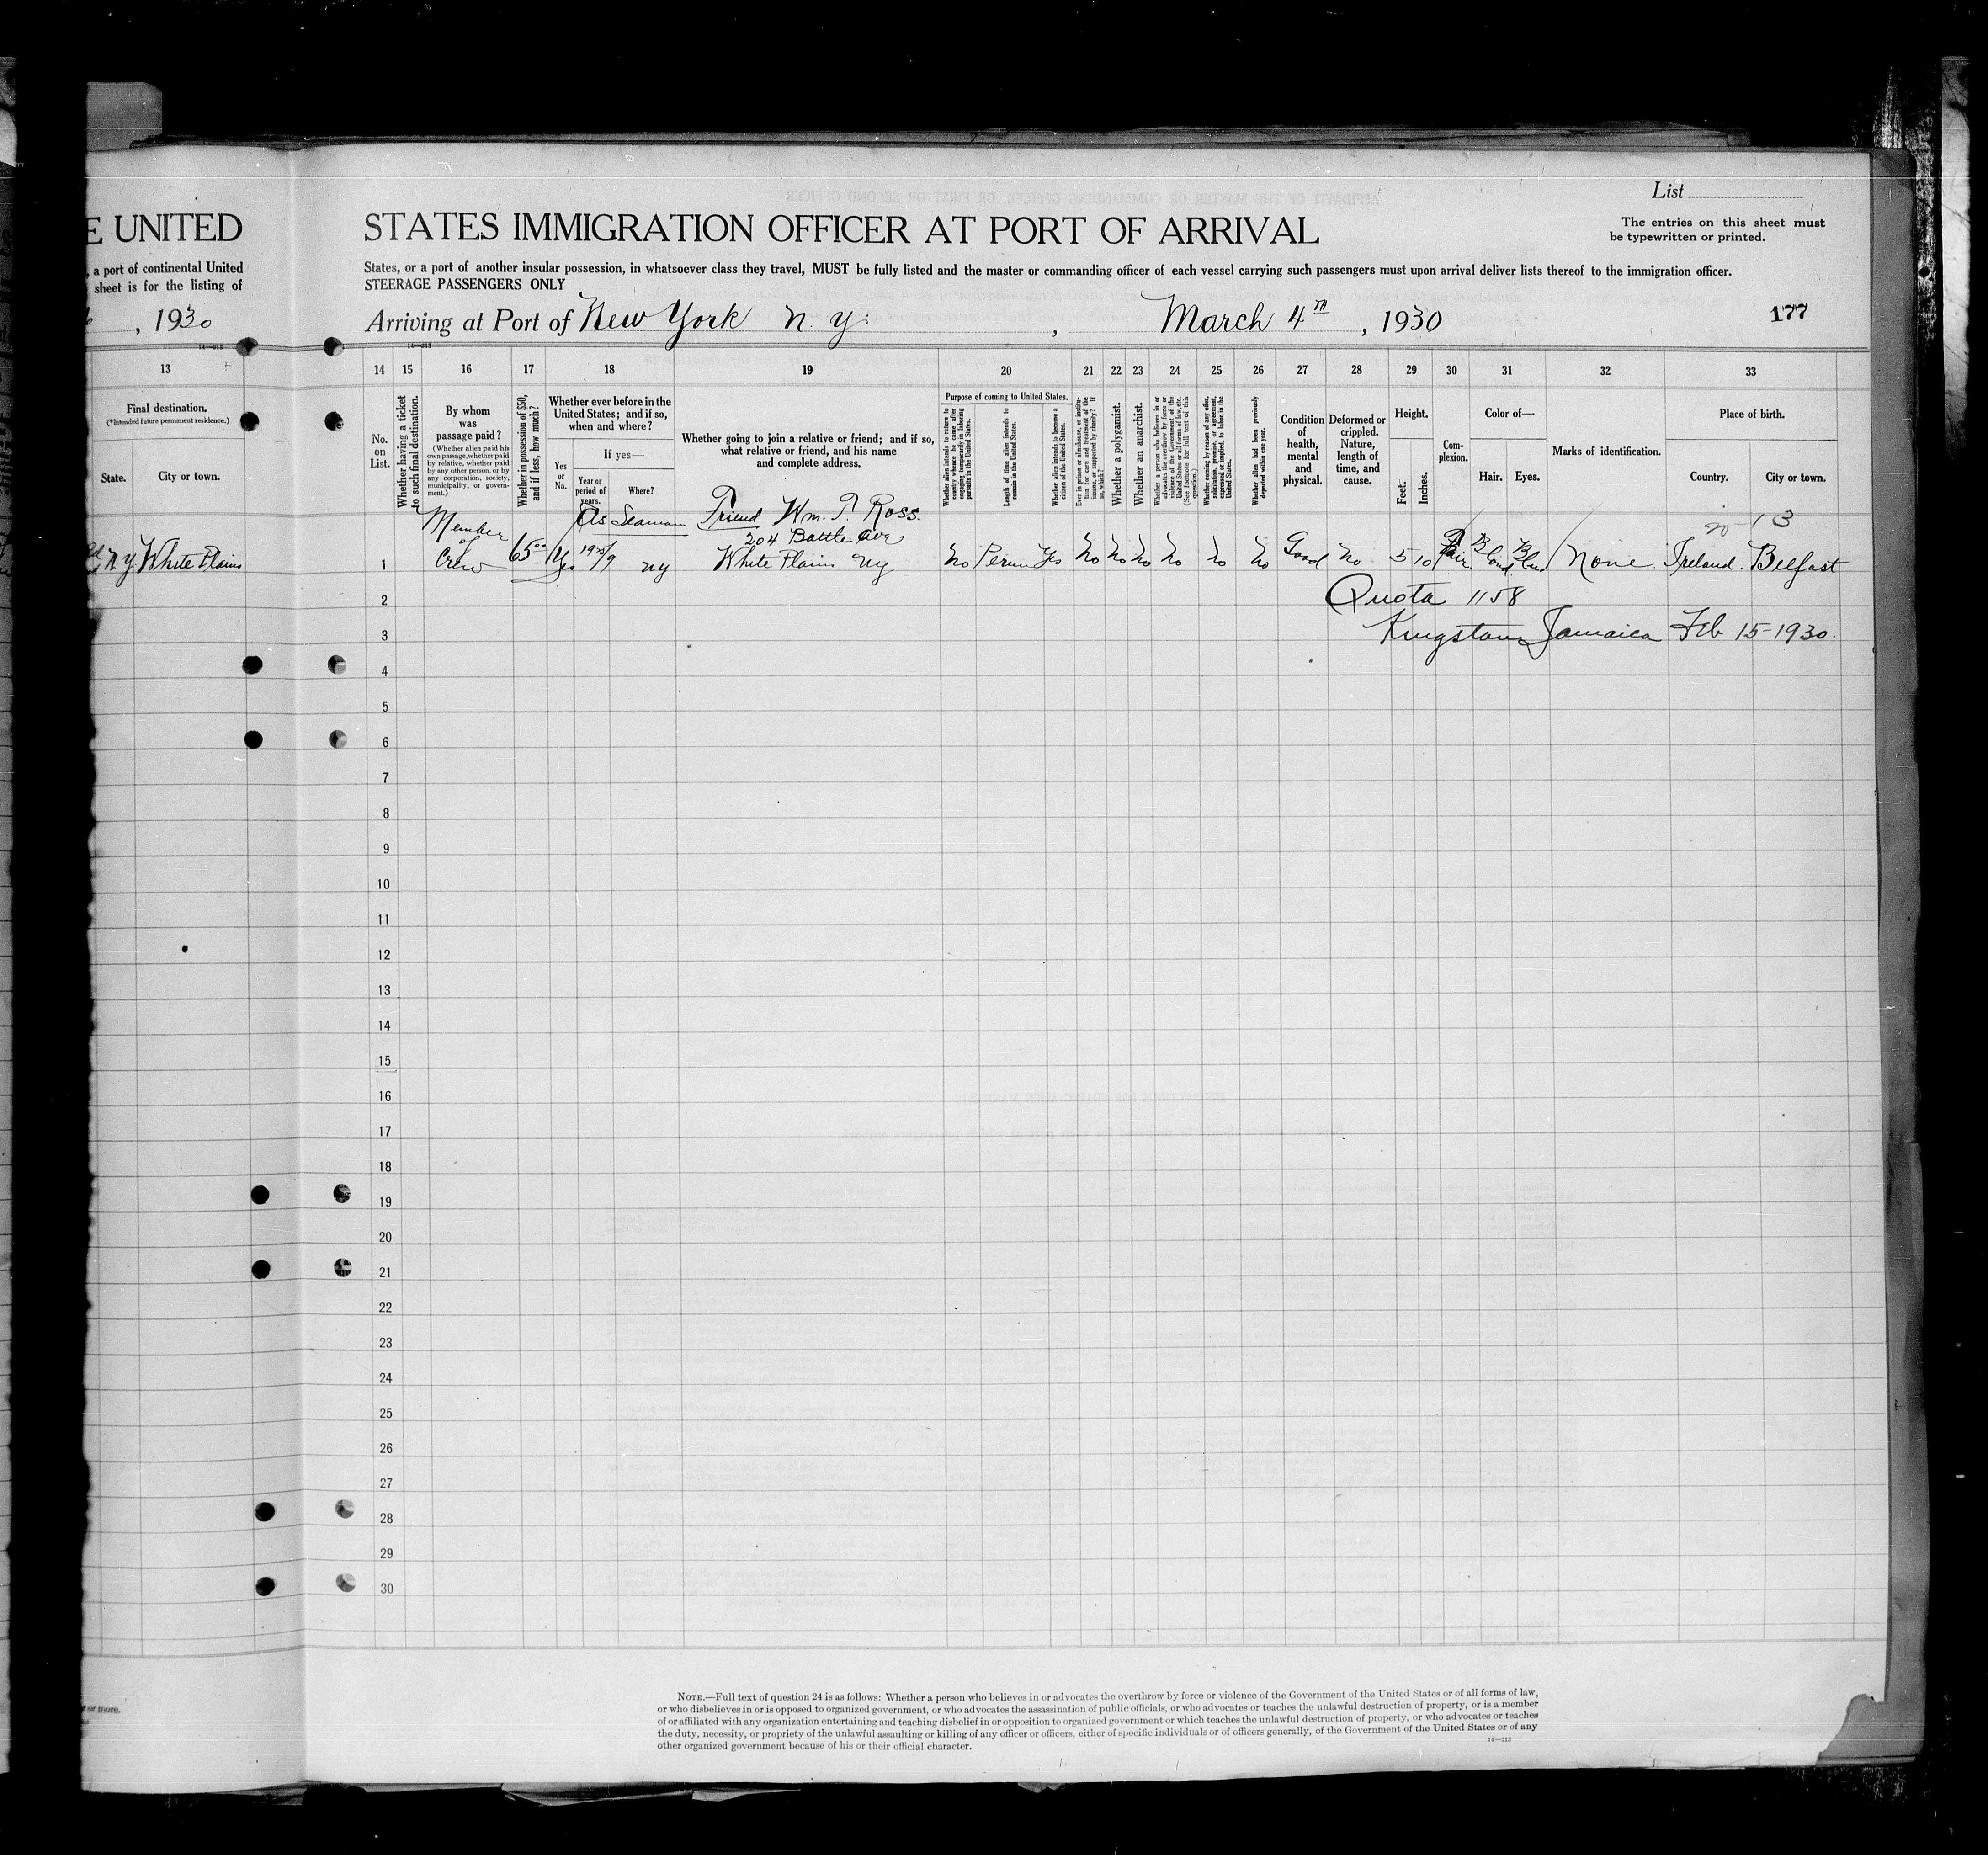 List
The entries on this sheet must
be typewritten or printed.
E UNITED
STATES IMMIGRATION OFFICER AT PORT OF ARRIVAL
, a port of continental United
sheet is for the listing of
States, or a port of another insular possession, in whatsoever class they travel, MUST be fully listed and the master or commanding officer of each vessel carrying such passengers must upon arrival deliver lists thereof to the immigration officer.
STEERAGE PASSENGERS ONLY
, 1930
Arriving at Port of New York N.Y. , March 4th , 1930
177
14—213
14—213
13 14 15 16 17 18 19 20 21 22 23 24 25 26 27 28 29 30 31 32 33
Final destination.
(*Intended future permanent residence.)
State.
City or town.
No.
on
List.
Whether having a ticket
to such final destination.
By whom
was
passage paid?
(Whether alien paid his
own passage, whether paid
by relative, whether paid
by any other person, or by
any corporation, society,
municipality, or govern-
ment.)
Whether in possession of $50,
and if less, how much?
Whether ever before in the
United States; and if so,
when and where?
Yes
or
No.
If yes—
Year or
period of
years.
Where?
Whether going to join a relative or friend; and if so,
what relative or friend, and his name
and complete address.
Purpose of coming to United States.
Whether alien intends to return to
country whence he came after
engaging temporarily in laboring
pursuits in the United States.
Length of time alien intends to
remain in the United States.
Whether alien intends to become a
citizen of the United States.
Ever in prison or almshouse, or institu-
tion for care and treatment of the
insane, or supported by charity? If
so, which?
Whether a polygamist.
Whether an anarchist.
Whether a person who believes in or
advocates the overthrow by force or
violence of the Government of the
United States or all forms of law, etc.
(See footnote for full text of this
question.)
Whether coming by reason of any offer,
solicitation, promise, or agreement,
expressed or implied, to labor in the
United States.
Whether alien had been previously
deported within one year.
Condition
of
health,
mental
and
physical.
Deformed or
crippled.
Nature,
length of
time, and
cause.
Height.
Feet.
Inches.
Com-
plexion.
Color of—
Hair.
Eyes.
Marks of identification.
Place of birth.
Country.
City or town.
Member
of
Crew
As Seaman
Friend Wm. T. Ross.
204 Battle Ave
White Plains NY
N.Y. White Plains
1
65.00 Yes
NY
No Perm Yes No No No No No No Good No 5 10 Fair Blond Blue None. Ireland. Belfast
2
Quota 1158
3
Kingston Jamaica Feb 15-1930.
4
5
6
7
8
9
10
11
12
13
14
15
16
17
18
19
20
21
22
23
24
25
26
27
28
29
30
or more.
NOTE.—Full text of question 24 is as follows: Whether a person who believes in or advocates the overthrow by force or violence of the Government of the United States or of all forms of law,
or who disbelieves in or is opposed to organized government, or who advocates the assassination of public officials, or who advocates or teaches the unlawful destruction of property, or is a member
of or affiliated with any organization entertaining and teaching disbelief in or opposition to organized government or which teaches the unlawful destruction of property, or who advocates or teaches
the duty, necessity, or propriety of the unlawful assaulting or killing of any officer or officers, either of specific individuals or of officers generally, of the Government of the United States or of any
other organized government because of his or their official character.
14—213